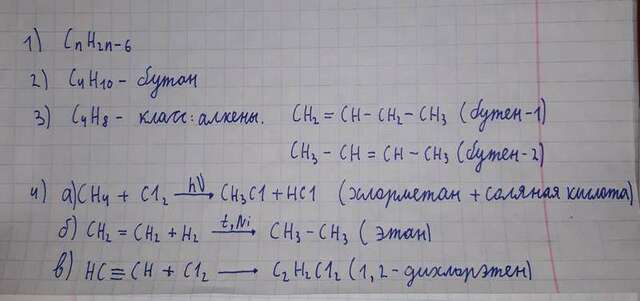 1) CnH2n-6
2) C4H10 - бутан
3) C4H8 - класс: алкены. CH2 = CH - CH2 - CH3 (бутен-1)
CH3 - CH = CH - CH3 (бутен-2)
4) а) CH4 + Cl2 hν→ CH3Cl + HCl (хлорметан + соляная кислота)
б) CH2 = CH2 + H2 t,Ni→ CH3 - CH3 (этан)
в) HC ≡ CH + Cl2 → C2H2Cl2 (1,2-дихлорэтен)